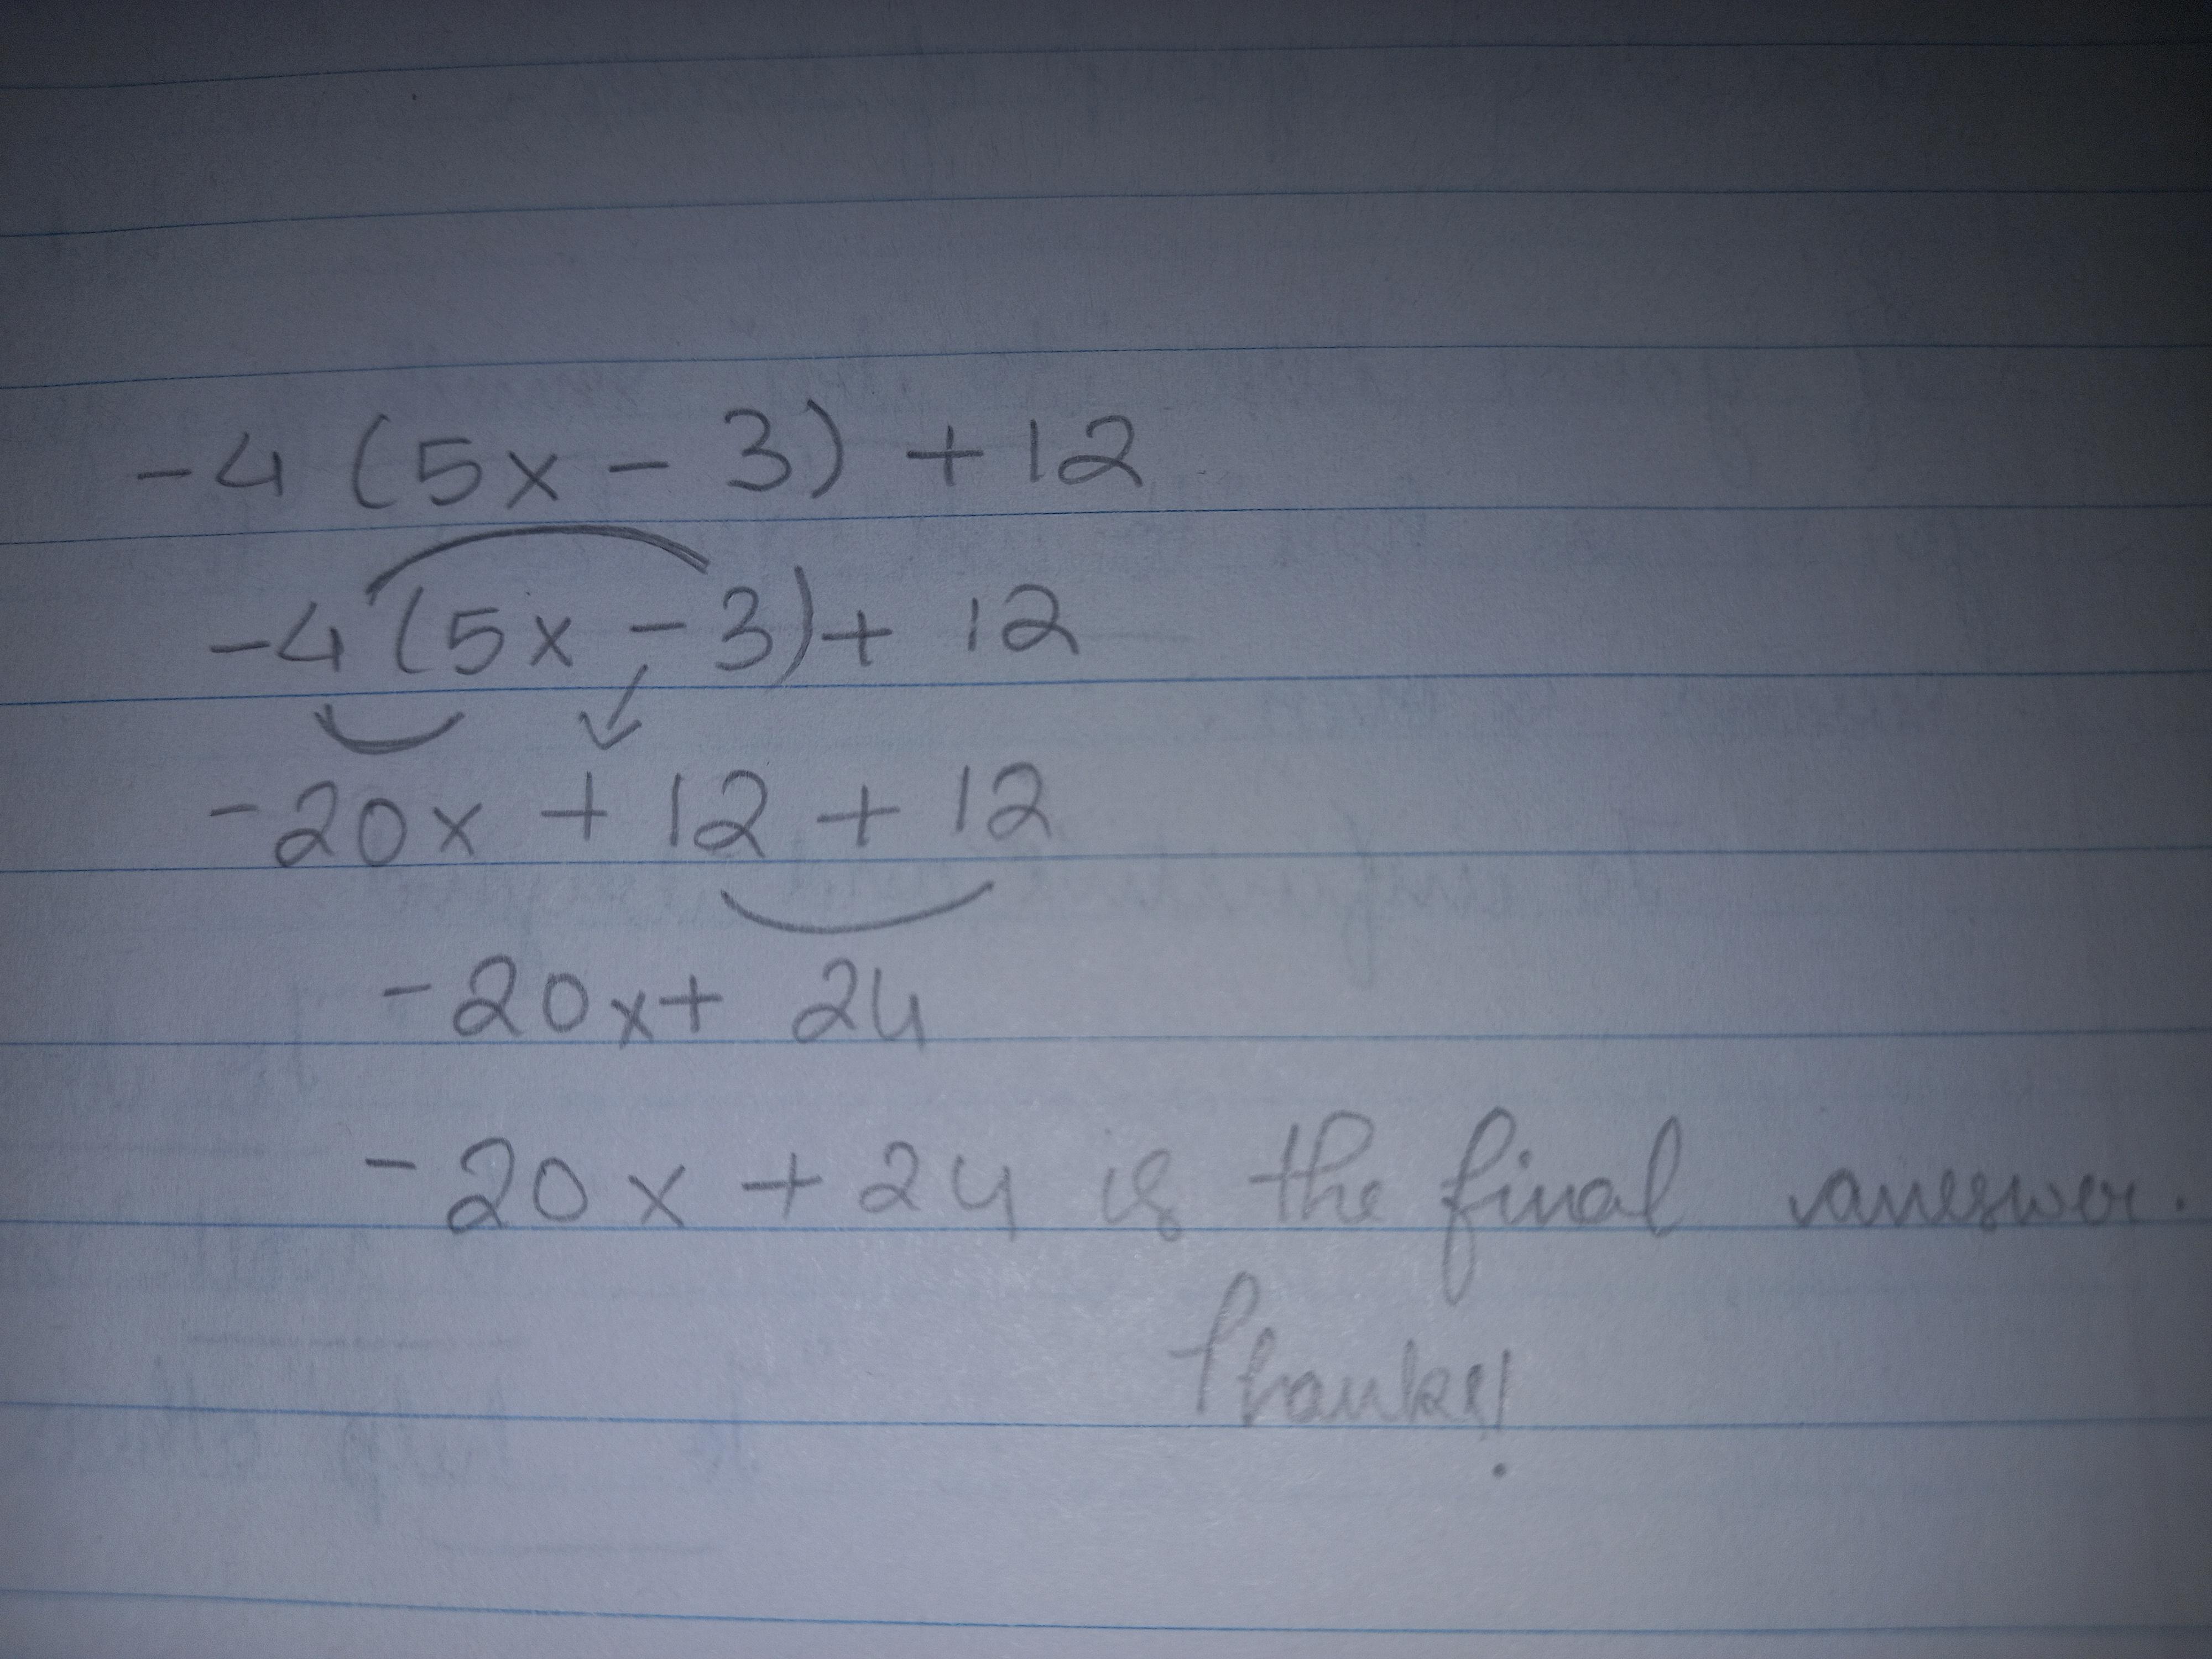 -4 (5x - 3) + 12
-4 (5x - 3) + 12
-20x + 12 + 12
-20x + 24
-20x + 24 is the final answer.
Thanks!